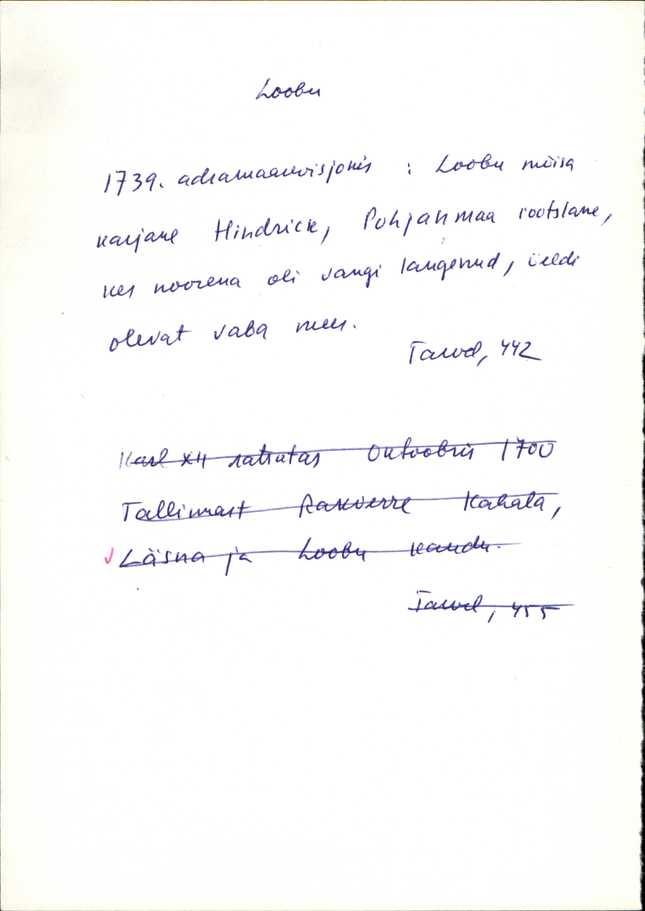 Loobu
1739. adramaarevisjonis : Loobu mõisa
karjane Hindrick, Pohjanmaa rootslane,
kes noorena oli vangi langenud, üeldi
olevat vaba mees.
Tarvel, 442
Karl XII ratsutas Oktoobris 1700
Tallinnast Rakverre Kahala,
Läsna ja Loobu kaudu.
Tarvel, 455